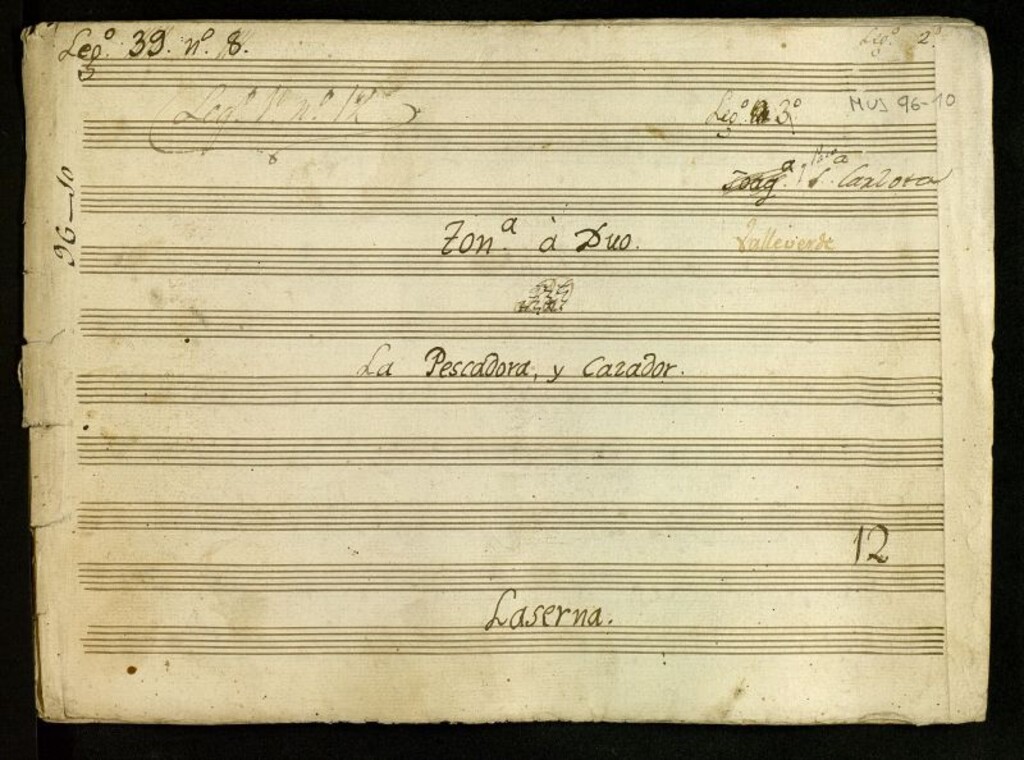 Leg.º 39. nº. 8.
Lig.º 2º
Leg.º 1º nº 12
Lig.º 3º
MUS 96-10
96-10
Joaq.ª
Carlota
Ton.ª à Duo.
Valleverde
La Pescadora, y Cazador.
12
Laserna.